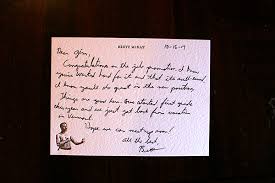 BRETT McKAY
10-16-17
Dear Glen,
Congratulations on the job promotion. I know
you've worked hard for it and that it's well-earned.
I know you'll do great in the new position.
Things are good here. Gus started first grade
and we just got back from vacation
in Vermont.
Hope we can meet up soon!
All the best,
Brett